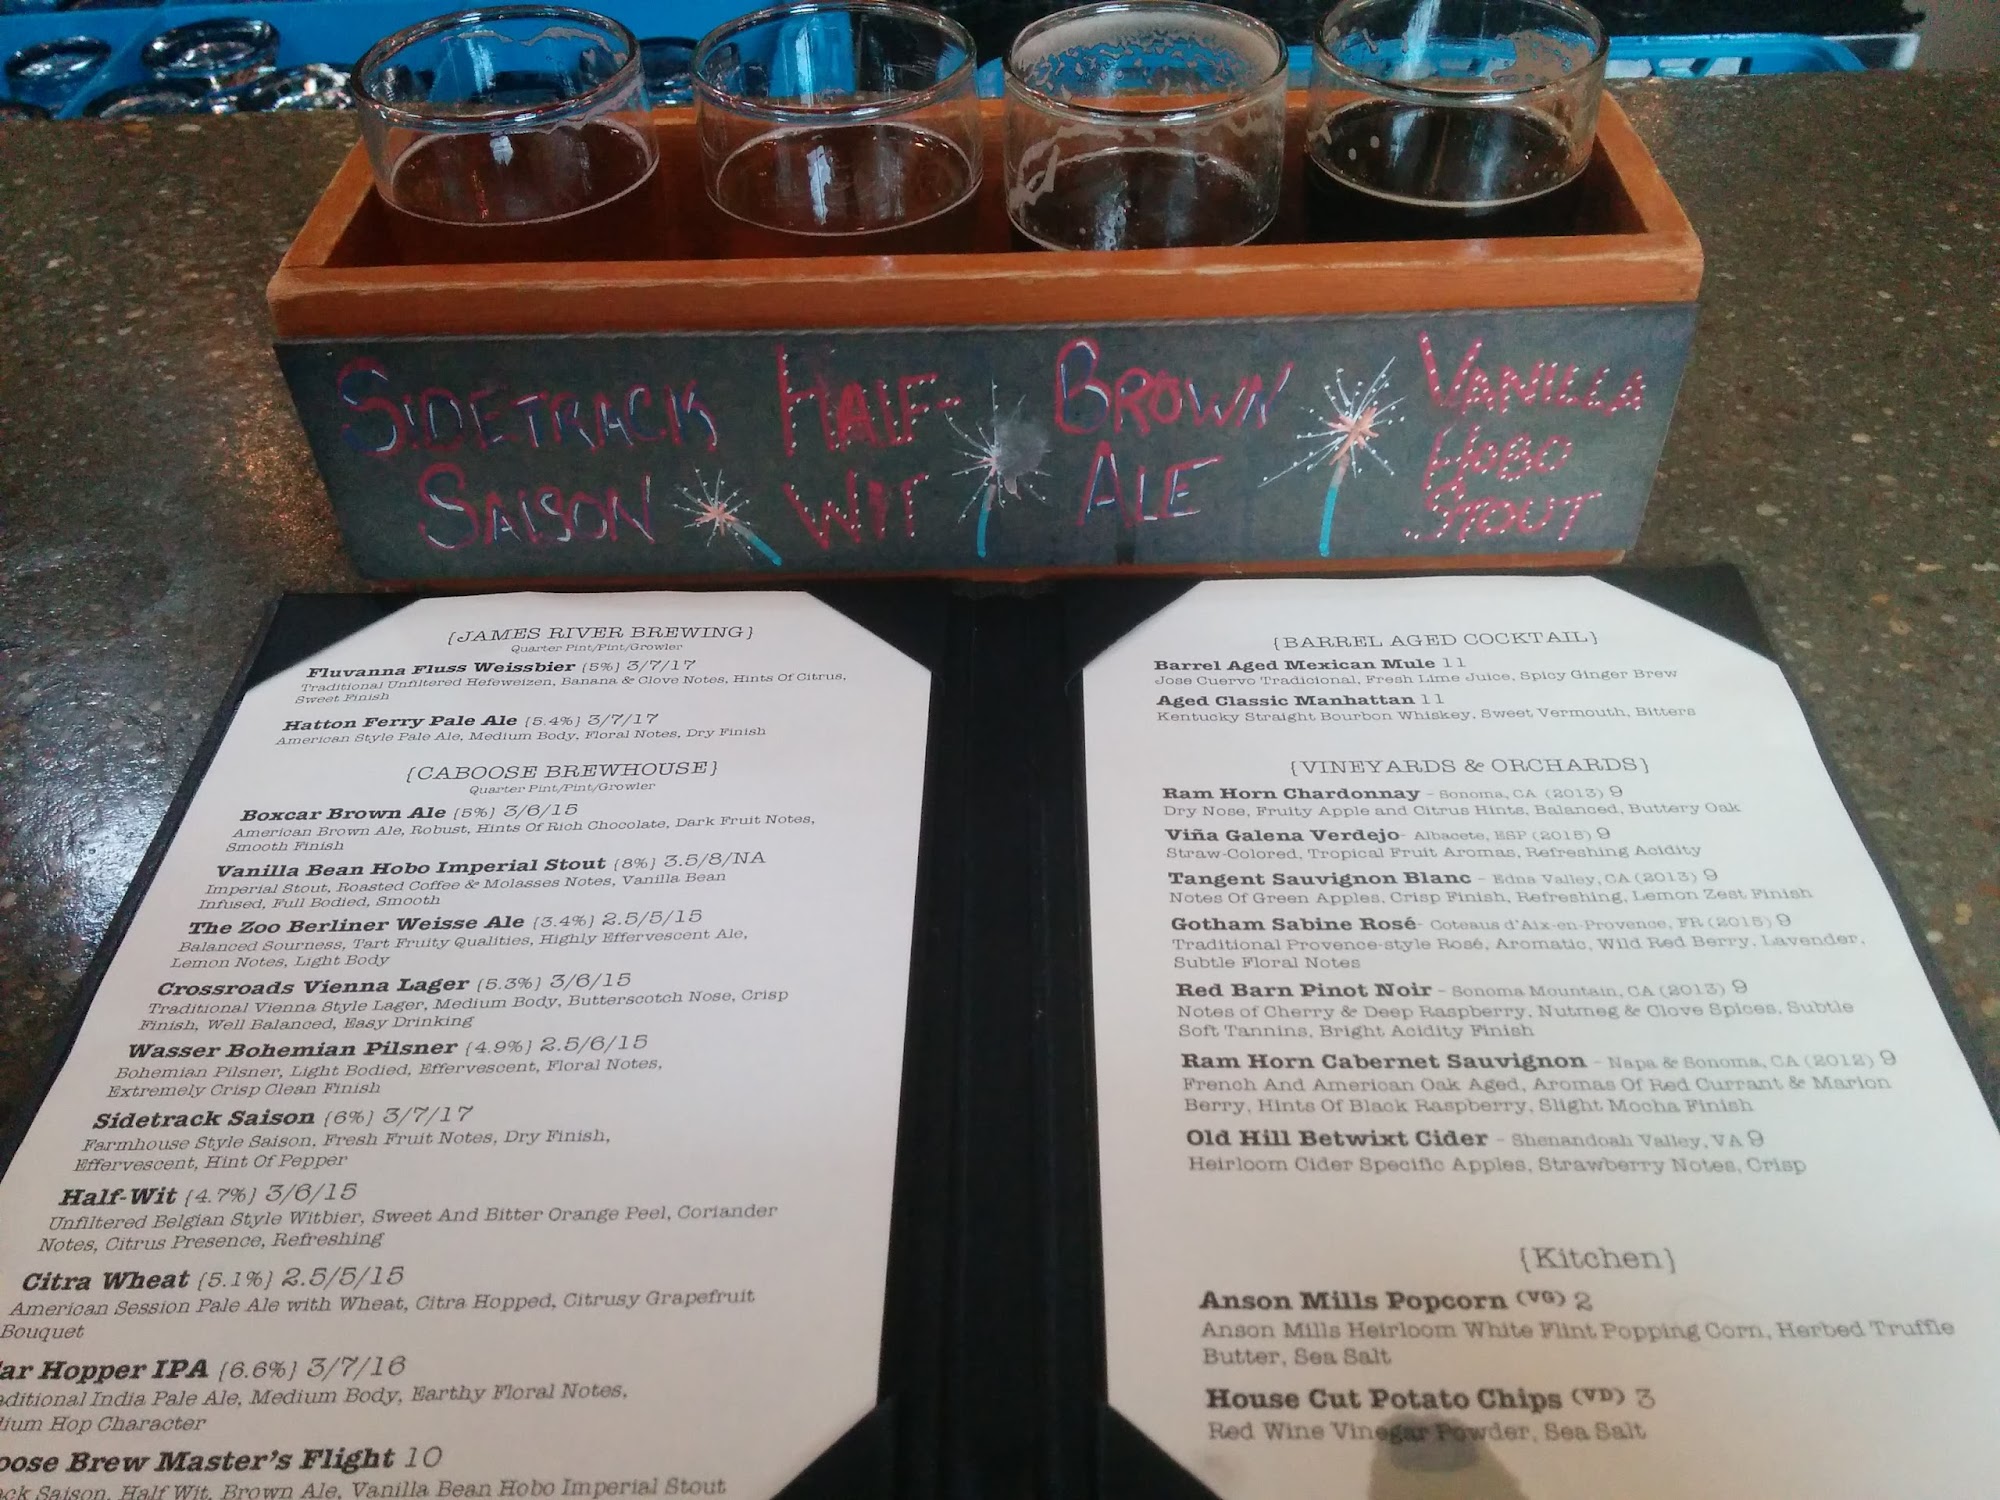 SIDETRACK SAISON
HALF-WIT
BROWN ALE
VANILLA HOBO STOUT
{JAMES RIVER BREWING}
Quarter Pint/Pint/Growler
Fluvanna Fluss Weissbier {5%} 3/7/17
Traditional Unfiltered Hefeweizen, Banana & Clove Notes, Hints Of Citrus,
Sweet Finish
Hatton Ferry Pale Ale {5.4%} 3/7/17
American Style Pale Ale, Medium Body, Floral Notes, Dry Finish
{CABOOSE BREWHOUSE}
Quarter Pint/Pint/Growler
Boxcar Brown Ale {5%} 3/6/15
American Brown Ale, Robust, Hints Of Rich Chocolate, Dark Fruit Notes,
Smooth Finish
Vanilla Bean Hobo Imperial Stout {8%} 3.5/8/NA
Imperial Stout, Roasted Coffee & Molasses Notes, Vanilla Bean
Infused, Full Bodied, Smooth
The Zoo Berliner Weisse Ale {3.4%} 2.5/5/15
Balanced Sourness, Tart Fruity Qualities, Highly Effervescent Ale,
Lemon Notes, Light Body
Crossroads Vienna Lager {5.3%} 3/6/15
Traditional Vienna Style Lager, Medium Body, Butterscotch Nose, Crisp
Finish, Well Balanced, Easy Drinking
Wasser Bohemian Pilsner {4.9%} 2.5/6/15
Bohemian Pilsner, Light Bodied, Effervescent, Floral Notes,
Extremely Crisp Clean Finish
Sidetrack Saison {6%} 3/7/17
Farmhouse Style Saison, Fresh Fruit Notes, Dry Finish,
Effervescent, Hint Of Pepper
Half-Wit {4.7%} 3/6/15
Unfiltered Belgian Style Witbier, Sweet And Bitter Orange Peel, Coriander
Notes, Citrus Presence, Refreshing
Citra Wheat {5.1%} 2.5/5/15
American Session Pale Ale with Wheat, Citra Hopped, Citrusy Grapefruit
Bouquet
ar Hopper IPA {6.6%} 3/7/16
ditional India Pale Ale, Medium Body, Earthy Floral Notes,
ium Hop Character
oose Brew Master's Flight 10
ck Saison, Half Wit, Brown Ale, Vanilla Bean Hobo Imperial Stout
{BARREL AGED COCKTAIL}
Barrel Aged Mexican Mule 11
Jose Cuervo Tradicional, Fresh Lime Juice, Spicy Ginger Brew
Aged Classic Manhattan 11
Kentucky Straight Bourbon Whiskey, Sweet Vermouth, Bitters
{VINEYARDS & ORCHARDS}
Ram Horn Chardonnay - Sonoma, CA (2013) 9
Dry Nose, Fruity Apple and Citrus Hints, Balanced, Buttery Oak
Viña Galena Verdejo- Albacete, ESP (2015) 9
Straw-Colored, Tropical Fruit Aromas, Refreshing Acidity
Tangent Sauvignon Blanc - Edna Valley, CA (2013) 9
Notes Of Green Apples, Crisp Finish, Refreshing, Lemon Zest Finish
Gotham Sabine Rosé- Coteaus d'Aix-en-Provence, FR (2015) 9
Traditional Provence-style Rosé, Aromatic, Wild Red Berry, Lavender,
Subtle Floral Notes
Red Barn Pinot Noir - Sonoma Mountain, CA (2013) 9
Notes of Cherry & Deep Raspberry, Nutmeg & Clove Spices, Subtle
Soft Tannins, Bright Acidity Finish
Ram Horn Cabernet Sauvignon - Napa & Sonoma, CA (2012) 9
French And American Oak Aged, Aromas Of Red Currant & Marion
Berry, Hints Of Black Raspberry, Slight Mocha Finish
Old Hill Betwixt Cider - Shenandoah Valley, VA 9
Heirloom Cider Specific Apples, Strawberry Notes, Crisp
{Kitchen}
Anson Mills Popcorn (VG) 2
Anson Mills Heirloom White Flint Popping Corn, Herbed Truffle
Butter, Sea Salt
House Cut Potato Chips (VD) 3
Red Wine Vinegar Powder, Sea Salt